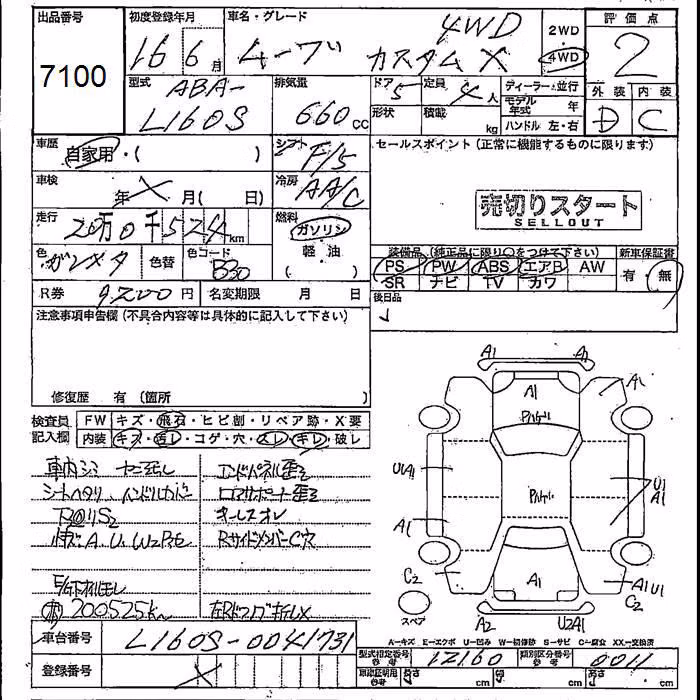 出品番号 初度登録年月 車名・グレード 評価点
7100
16年 6月 ムーブ カスタム X 4WD 2WD 4WD 2
型式 排気量 ドア 定員 ディーラー・並行 外装 内装
ABA-L160S 660 cc 5 4人 モデル年式 年 D C
形状 積載 kg ハンドル 左・右
車歴 自家用・( ) シフト F/5 セールスポイント (正常に機能するものに限ります)
車検 年 X 月( 日) 冷房 AA/C
売切りスタート
SELLOUT
走行 20万0千524km 燃料 ガソリン
軽油
( )
色 ガンメタ 色替 色コード B30
装備品 (純正品に限り○をつけて下さい) 新車保証書
PS PW ABS エアB AW 有・無
SR ナビ TV カワ
R券 9,200円 名変期限 月 日 後日品
注意事項申告欄 (不具合内容等は具体的に記入して下さい)
修復歴 有 (箇所 )
検査員記入欄 FW キズ・飛石・ヒビ割・リペア跡・X要
内装 キズ・汚レ・コゲ・穴・スレ・キレ・破レ
車内シミ エンドパネル歪
シートヘタリ ハンドルカバー ロアサポート歪
下回りS2 キーレスオレ
小キズ A U W2 Rサイドメンバー C穴
200525k
A1 A1
A1 A1
UA1 U1
A1
A1
C2 A1 A1U1
C2
スペア A2 U2A1
A-キズ E-エクボ U-凹み W-補修跡 S-サビ C-腐食 XX-交換済
車台番号 L160S-0041731 型式指定番号 参考 12160 類別区分番号 参考 0011
登録番号 X 車庫証明用 参考 cm cm cm